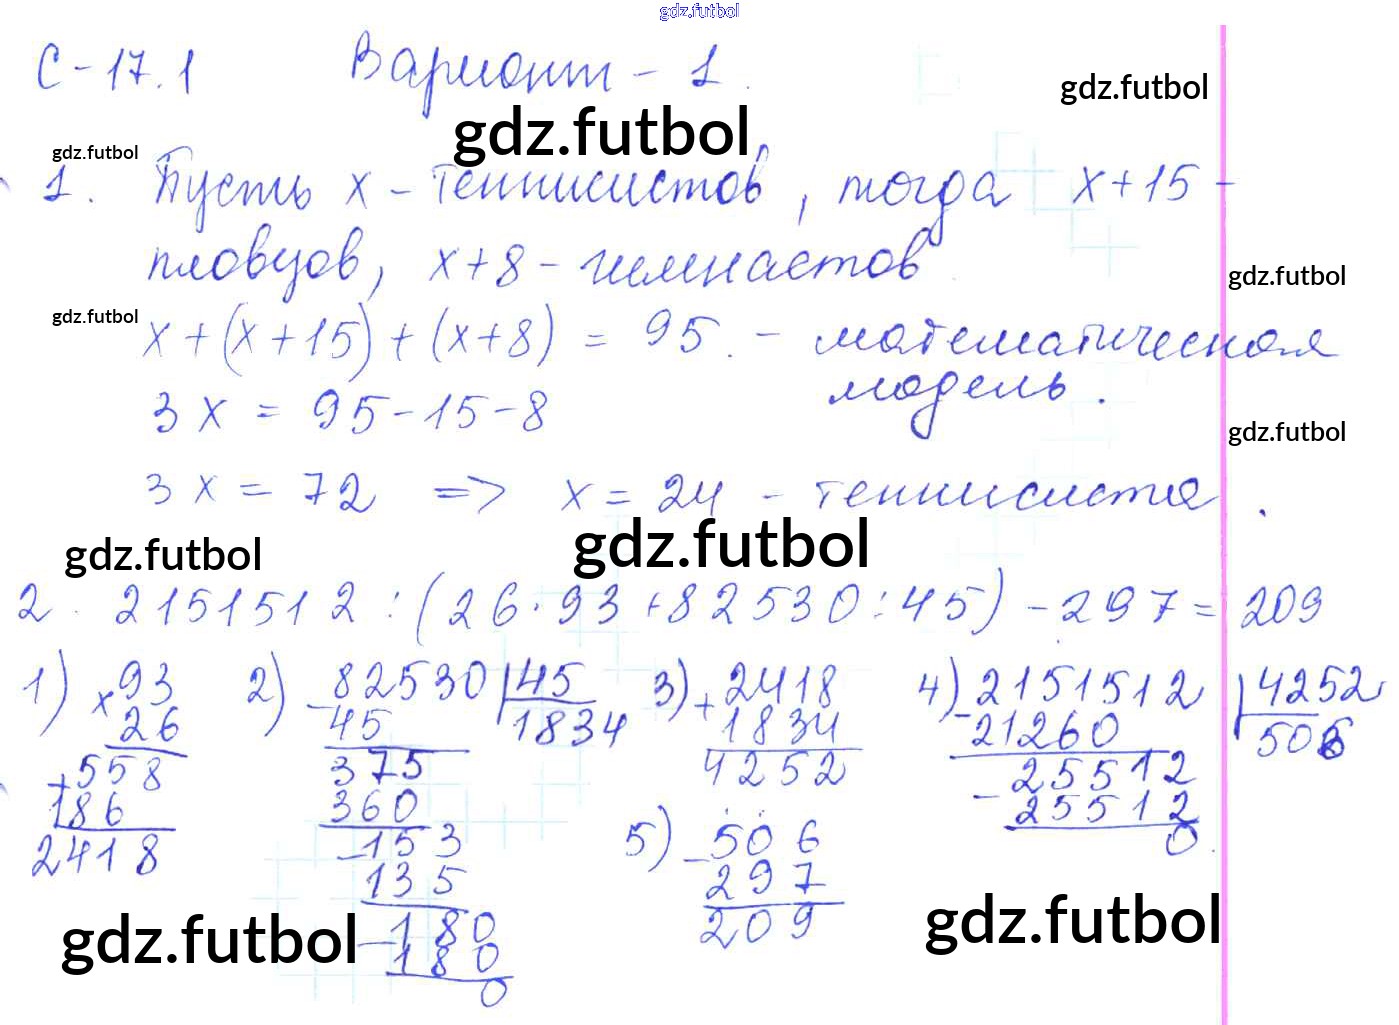 gdz.futbol
С-17.1 Вариант - 1.
gdz.futbol
gdz.futbol
gdz.futbol
1. Пусть x - теннисистов, тогда x+15 -
пловцов, x+8 - гимнастов
gdz.futbol
gdz.futbol
x + (x+15) + (x+8) = 95. - математическая
модель.
3x = 95-15-8
gdz.futbol
3x = 72 => x = 24 - теннисиста.
gdz.futbol
gdz.futbol
2. 2151512 : (26·93+82530:45) - 297 = 209
1) ×93
26
+558
186
2418
2) -82530 | 45
45 1834
375
360
-153
135
-180
-180
0
3) +2418
1834
4252
4) -2151512 | 4252
21260 506
25512
-25512
0
5) -506
297
209
gdz.futbol
gdz.futbol